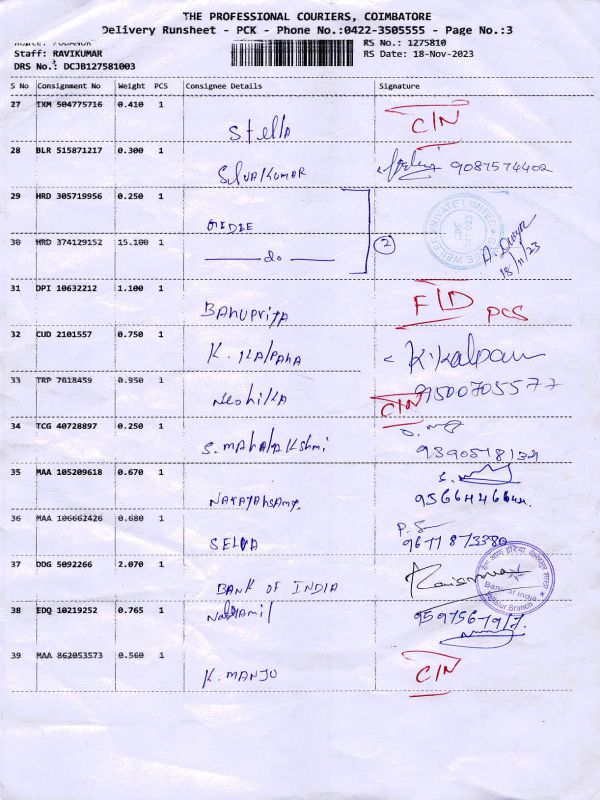 THE PROFESSIONAL COURIERS, COIMBATORE
Delivery Runsheet - PCK - Phone No.:0422-3505555 - Page No.:3
Route: PODANUR RS No.: 1275810
Staff: RAVIKUMAR RS Date: 18-Nov-2023
DRS No.: DCJB127581003
S No Consignment No Weight PCS Consignee Details Signature
27 IXM 504775716 0.410 1
Stella C/N
28 BLR 515871217 0.300 1
SelvaKUMAR 9087574402
29 HRD 305719956 0.250 1
GEDEE
30 HRD 374129152 15.100 1
do 2
18/11/23
31 DPI 10632212 1.100 1
Banupriya F/D PCS
32 CUD 2101557 0.750 1
K. Kalpana K.Kalpana
33 TRP 7618459 0.950 1 9500705577
C/N
34 TCG 40728897 0.250 1
S. Mahalakshmi
35 MAA 105209618 0.670 1
Narayansamy.
36 MAA 106662426 0.680 1
SELVA 9677873380
37 DDG 5092266 2.070 1
BANK OF INDIA
Bank of India
Branch
38 EDQ 10219252 0.765 1
39 MAA 862053573 0.560 1
K. MANJU C/N